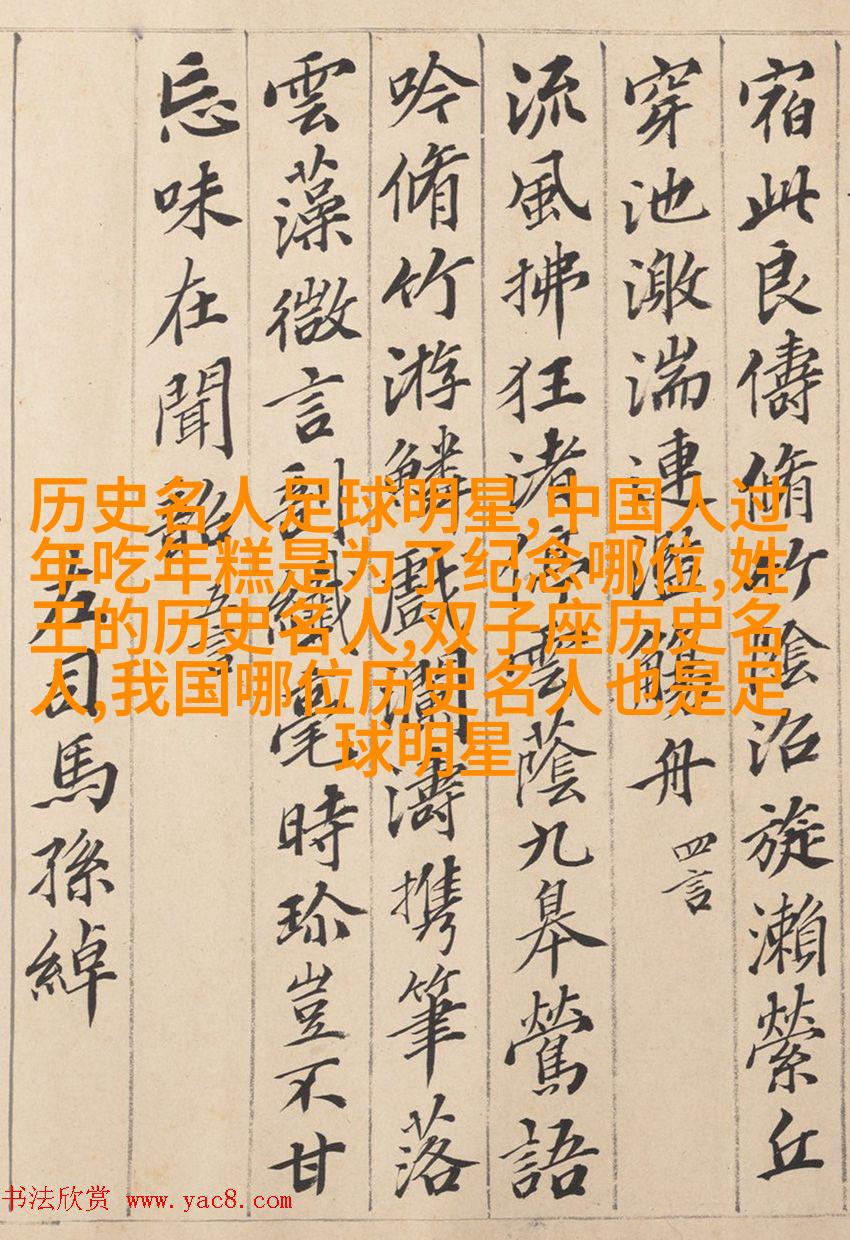 宿此良儔脩竹陰沼旋瀨縈丘
穿池激湍連濫觴舟 四言
流風拂狂渚停雲蔭九皋鶯語
吟脩竹游鱗戲瀾濤携筆落
雲藻微言剖纖毫時珎豈不甘
忘味在聞韶 五言
右司馬孫綽
历史名人足球明星,中国人过
年吃年糕是为了纪念哪位,姓
王的历史名人,双子座历史名
人,我国哪位历史名人也是足
球明星
书法欣赏 www.yac8.com